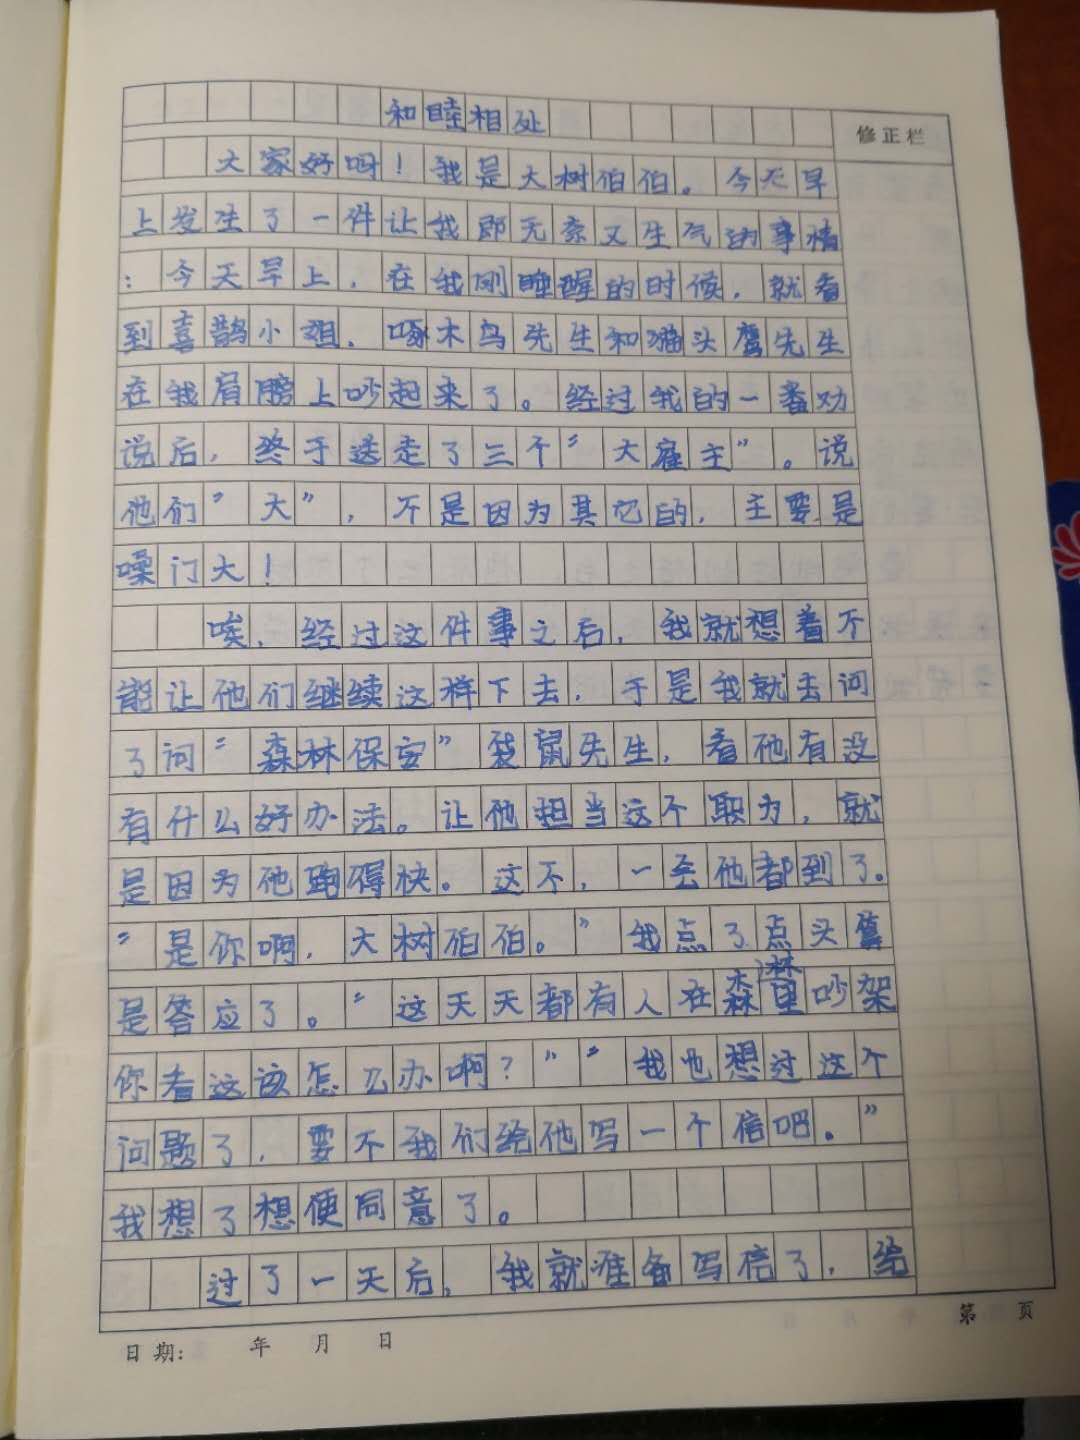 和睦相处
修正栏
大家好吗！我是大树伯伯。今天早
上发生了一件让我即无奈又生气的事情
：今天早上，在我刚睡醒的时候，就看
到喜鹊小姐、啄木鸟先生和猫头鹰先生
在我肩膀上吵起来了。经过我的一番劝
说后，终于送走了三个“大雇主”。说
他们“大”，不是因为其它的，主要是
嗓门大！
唉，经过这件事之后，我就想着不
能让他们继续这样下去，于是我就去问
了问“森林保安”袋鼠先生，看他有没
有什么好办法。让他担当这个职为，就
是因为他跑得快。这不，一会他都到了。
“是你啊，大树伯伯。”我点了点头算
是答应了。“这天天都有人在森林里吵架
你看这该怎么办啊？”“我也想过这个
问题了，要不我们给他写一个信吧。”
我想了想便同意了。
过了一天后，我就准备写信了，给
日期： 年 月 日
第 页